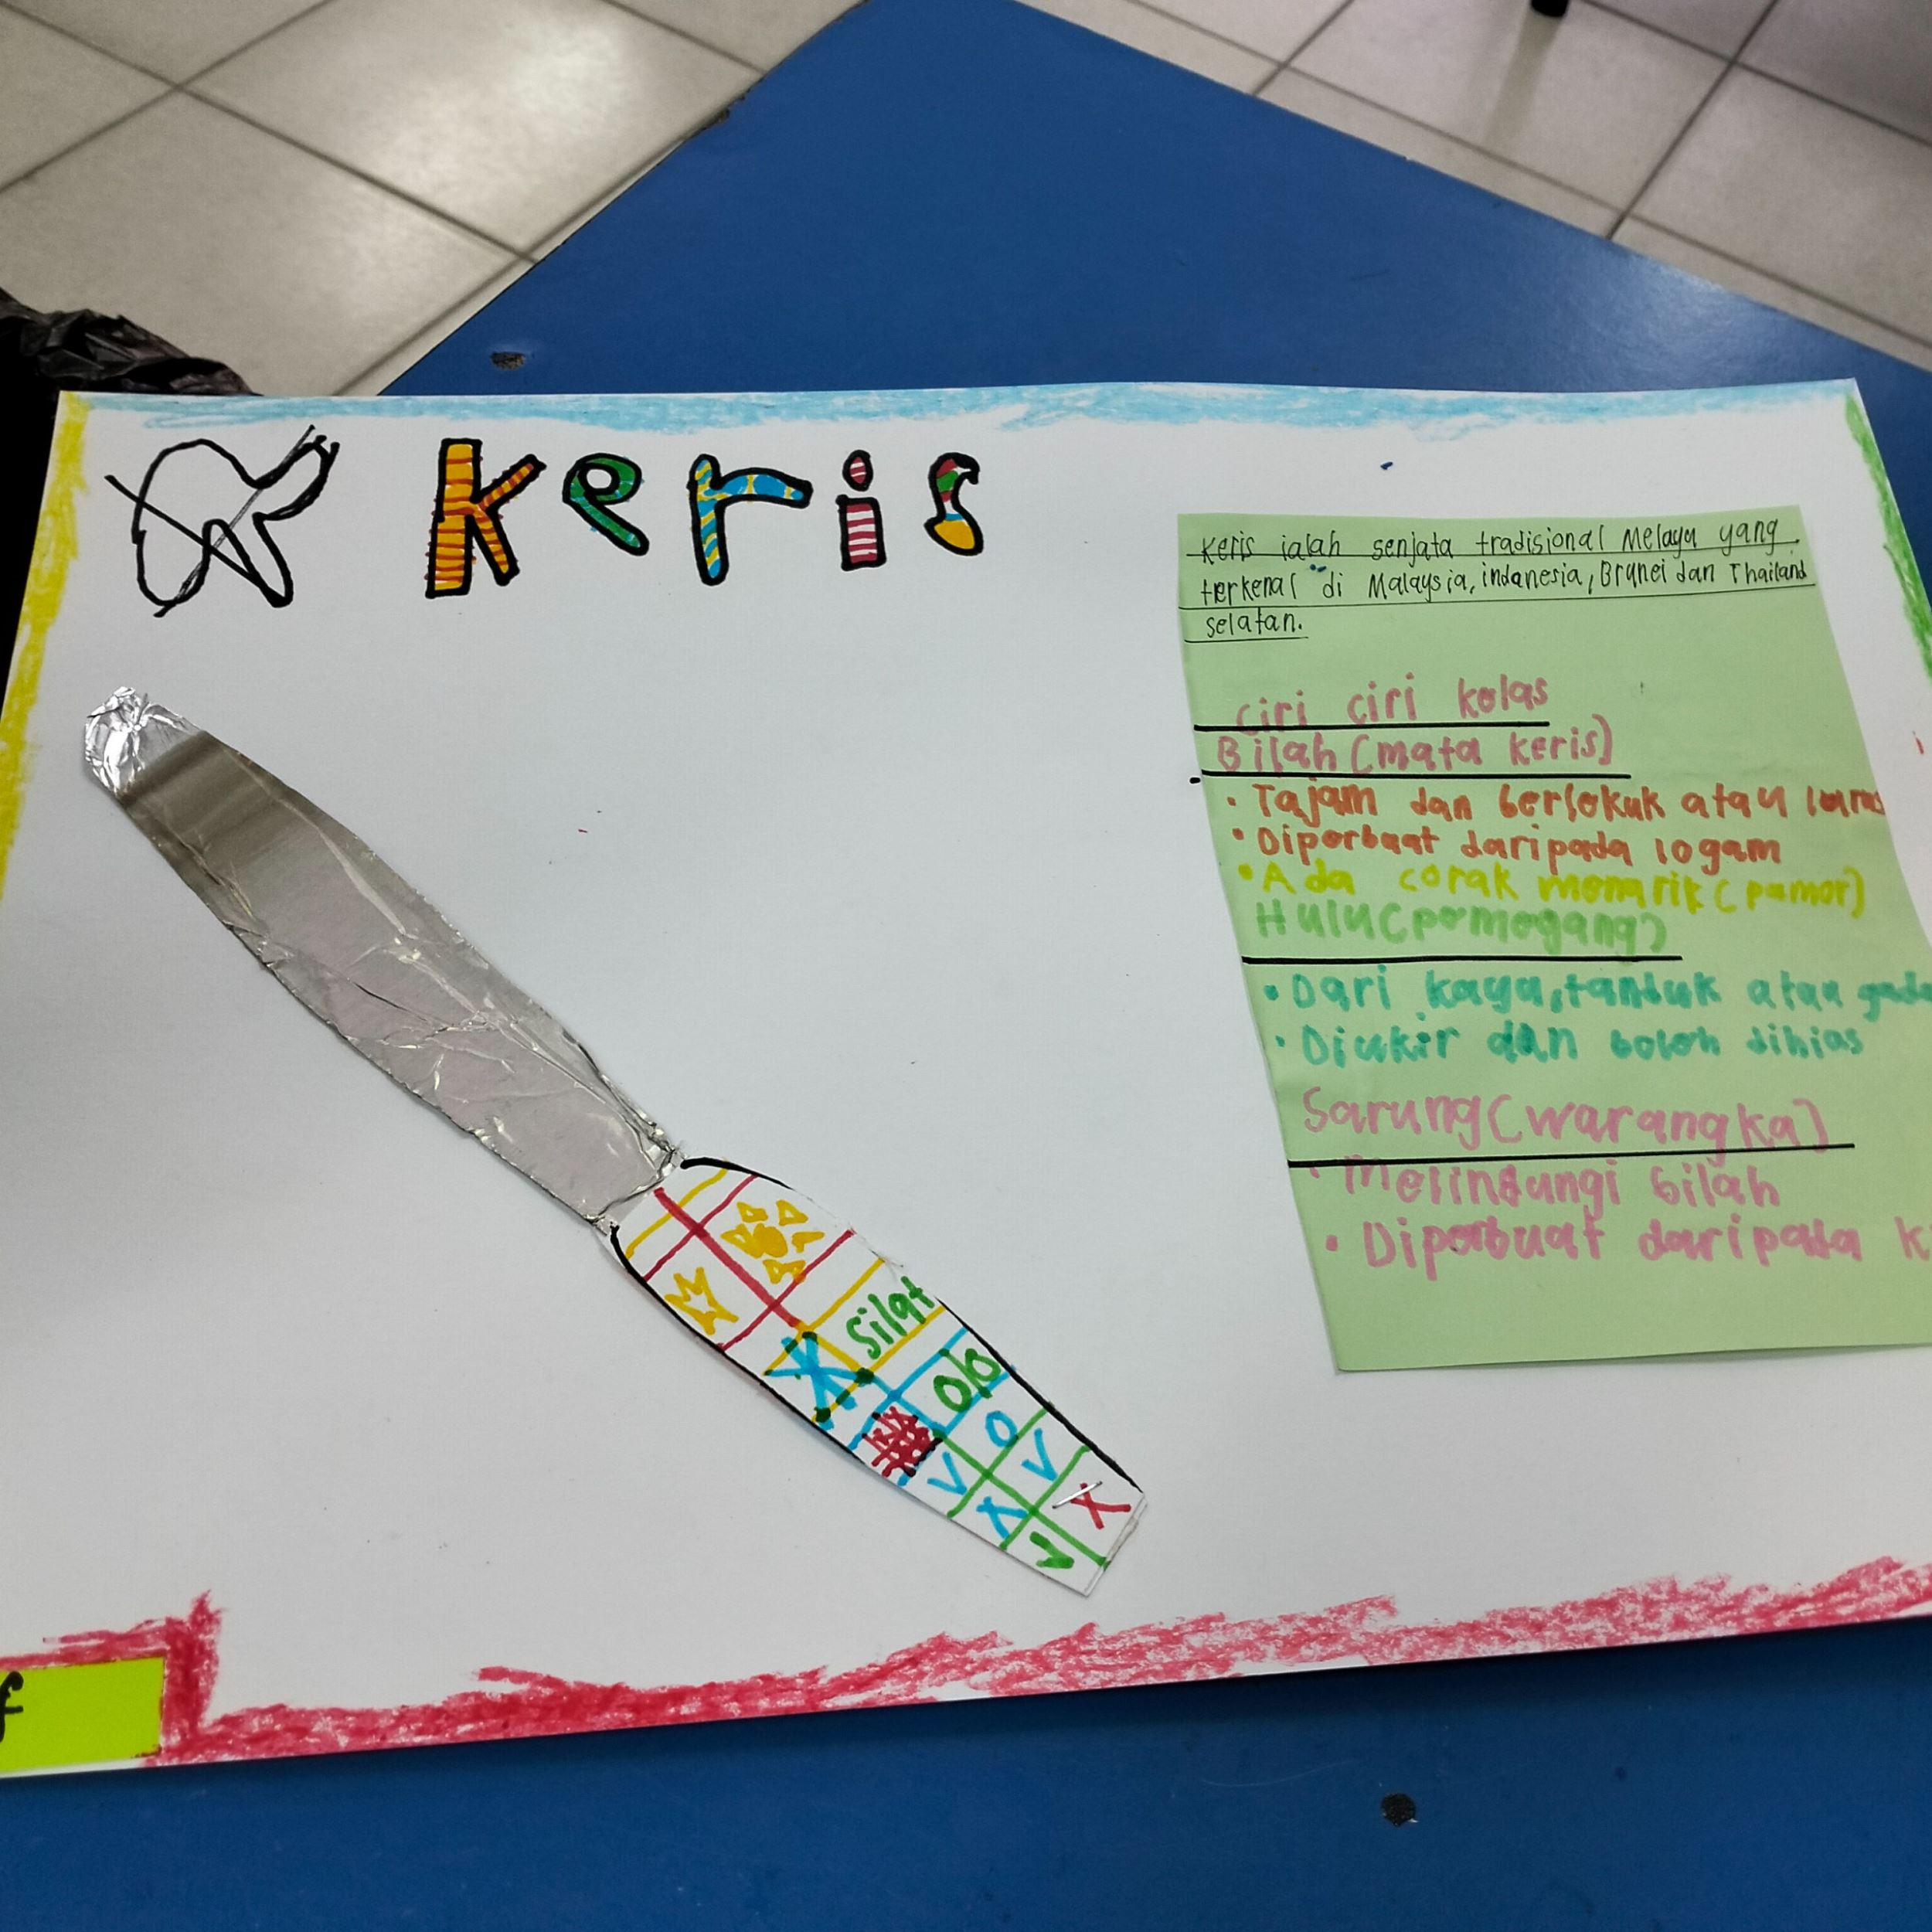 keris
keris ialah senjata tradisional Melayu yang
terkenal di Malaysia, indanesia, Brunei dan Thailand
selatan.
Ciri ciri kelas
Bilah (mata keris)
• Tajam dan berlokuk atau
• Diperbuat daripada logam
• Ada corak menarik (pamor)
Hulu (pemegang)
• Dari kaya, tanduk atau
• Diukir dan boleh dihias
Sarung (warangka)
• Melindungi bilah
• Diperbuat daripada
silat